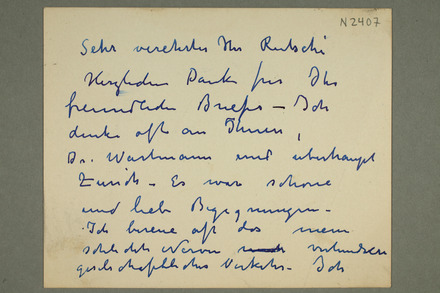 N 2407
Sehr verehrter Herr Rutschi
Herzlichen Dank für Ihr
freundlichen Briefes – Ich
denke oft an Ihnen,
Dr. Wartmann und überhaupt
Zürich – Es war schöne
und liebe Begegnungen –
Ich bereue oft das mein
schlechte Nerven verhindern
gesellschaftliches Verkehr – Ich